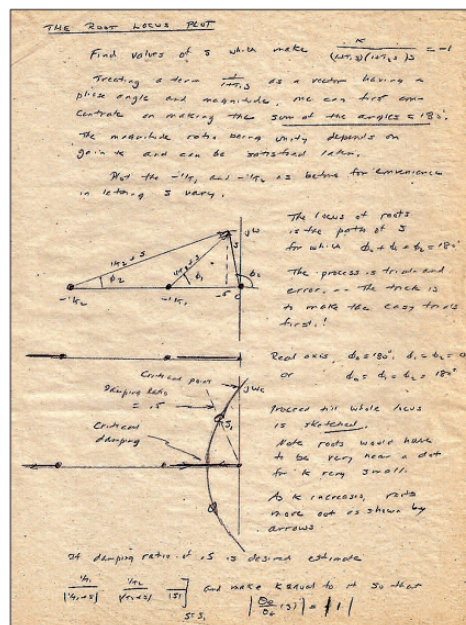 THE ROOT LOCUS PLOT
Find values of S which make K / (1+T₁S)(1+T₂S)S = -1
Treating a term 1/1+T₁S as a vector having a
phase angle and magnitude, we can first con-
centrate on making the sum of the angles = 180°.
The magnitude ratio being unity depends on
gain K and can be satisfied later.
Plot the -1/T₁ and -1/T₂ as before for convenience
in letting S vary.
The locus of roots
is the path of S
for which ϕ₀ + ϕ₁ + ϕ₂ = 180°
The process is trial and
error, -- The trick is
to make the easy trials
first.!
1/T₂ + S
1/T₁ + S
S
jω
ϕ₂
ϕ₁
ϕ₀
-1/T₂
-1/T₁
-5
0
Real axis, ϕ₀ = 180°, ϕ₁ = ϕ₂ = 0
or ϕ₀ = ϕ₁ = ϕ₂ = 180°
Critical point
Damping ratio
= .5
jωc
S₁
Critical
damping
Proceed till whole locus
is sketched.
Note roots would have
to be very near a dot
for K very small.
As K increases, roots
move out as shown by
arrows
If damping ratio of .5 is desired estimate
1/T₁ / |1/T₁+S| 1/T₂ / |1/T₂+S| |S| ] S=S₁ and make K equal to it so that
| θo/θe (S) | = | 1 |